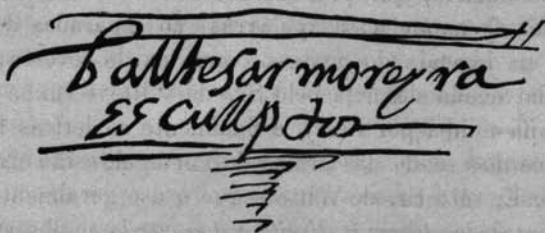 balltesar moreyra
escullptor